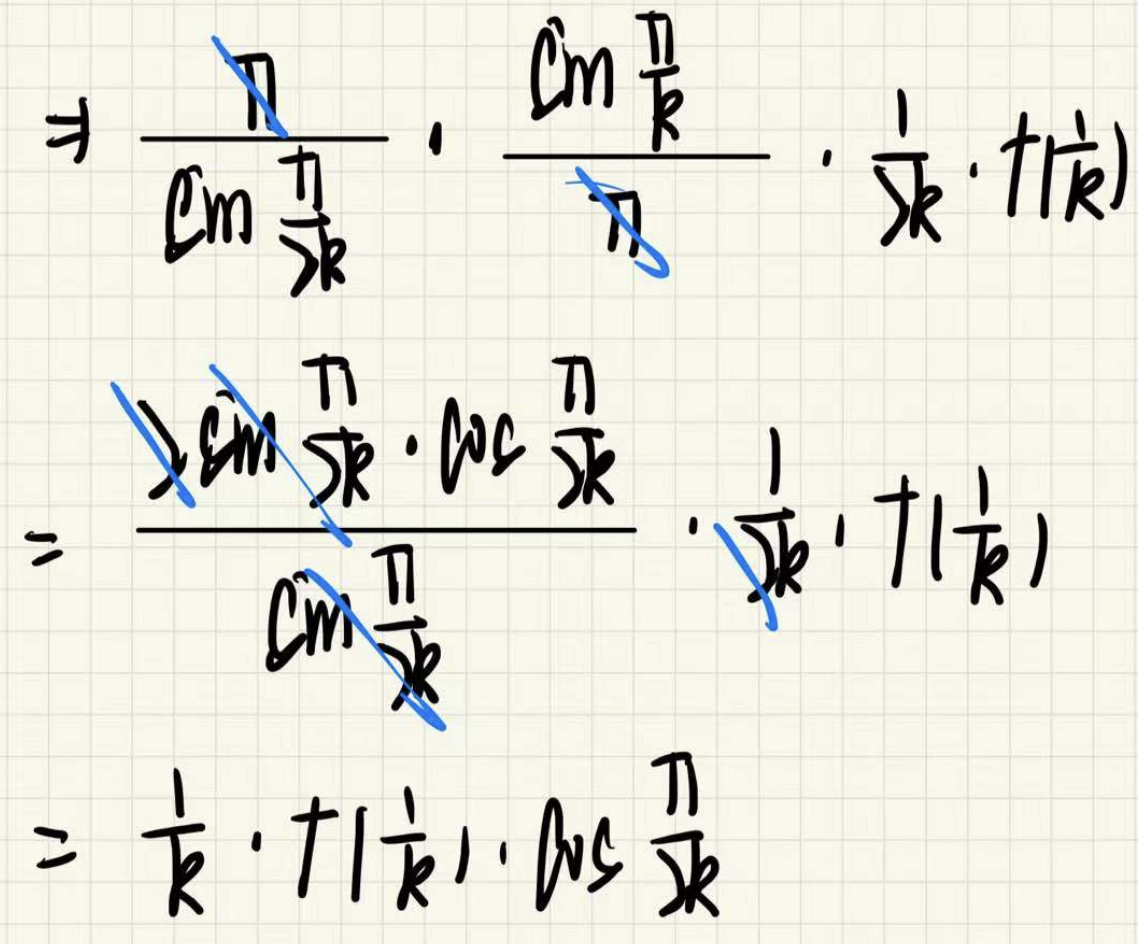 ⇒ π / (sin π/2k) · (sin π/k) / π · 1/2k · Γ(1/k)
= (2 sin π/2k · cos π/2k) / (sin π/2k) · 1/2k · Γ(1/k)
= 1/k · Γ(1/k) · cos π/2k